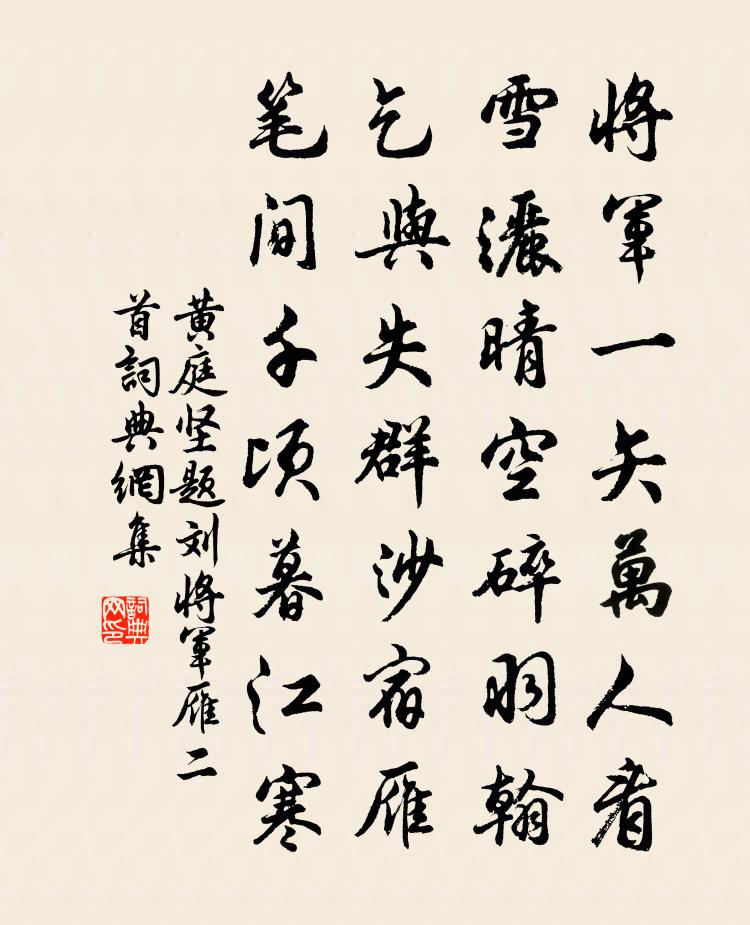 將軍一矢萬人看
雪灑晴空碎羽翰
乞與失群沙宿雁
笔間千頃暮江寒
黄庭坚题刘將軍雁二
首詞典網集
詞典
网印